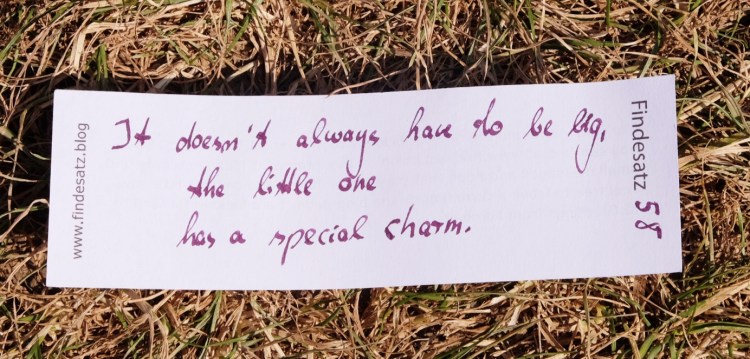 www.findesatz.blog
It doesn't always have to be big,
the little one
has a special charm.
Findesatz 58